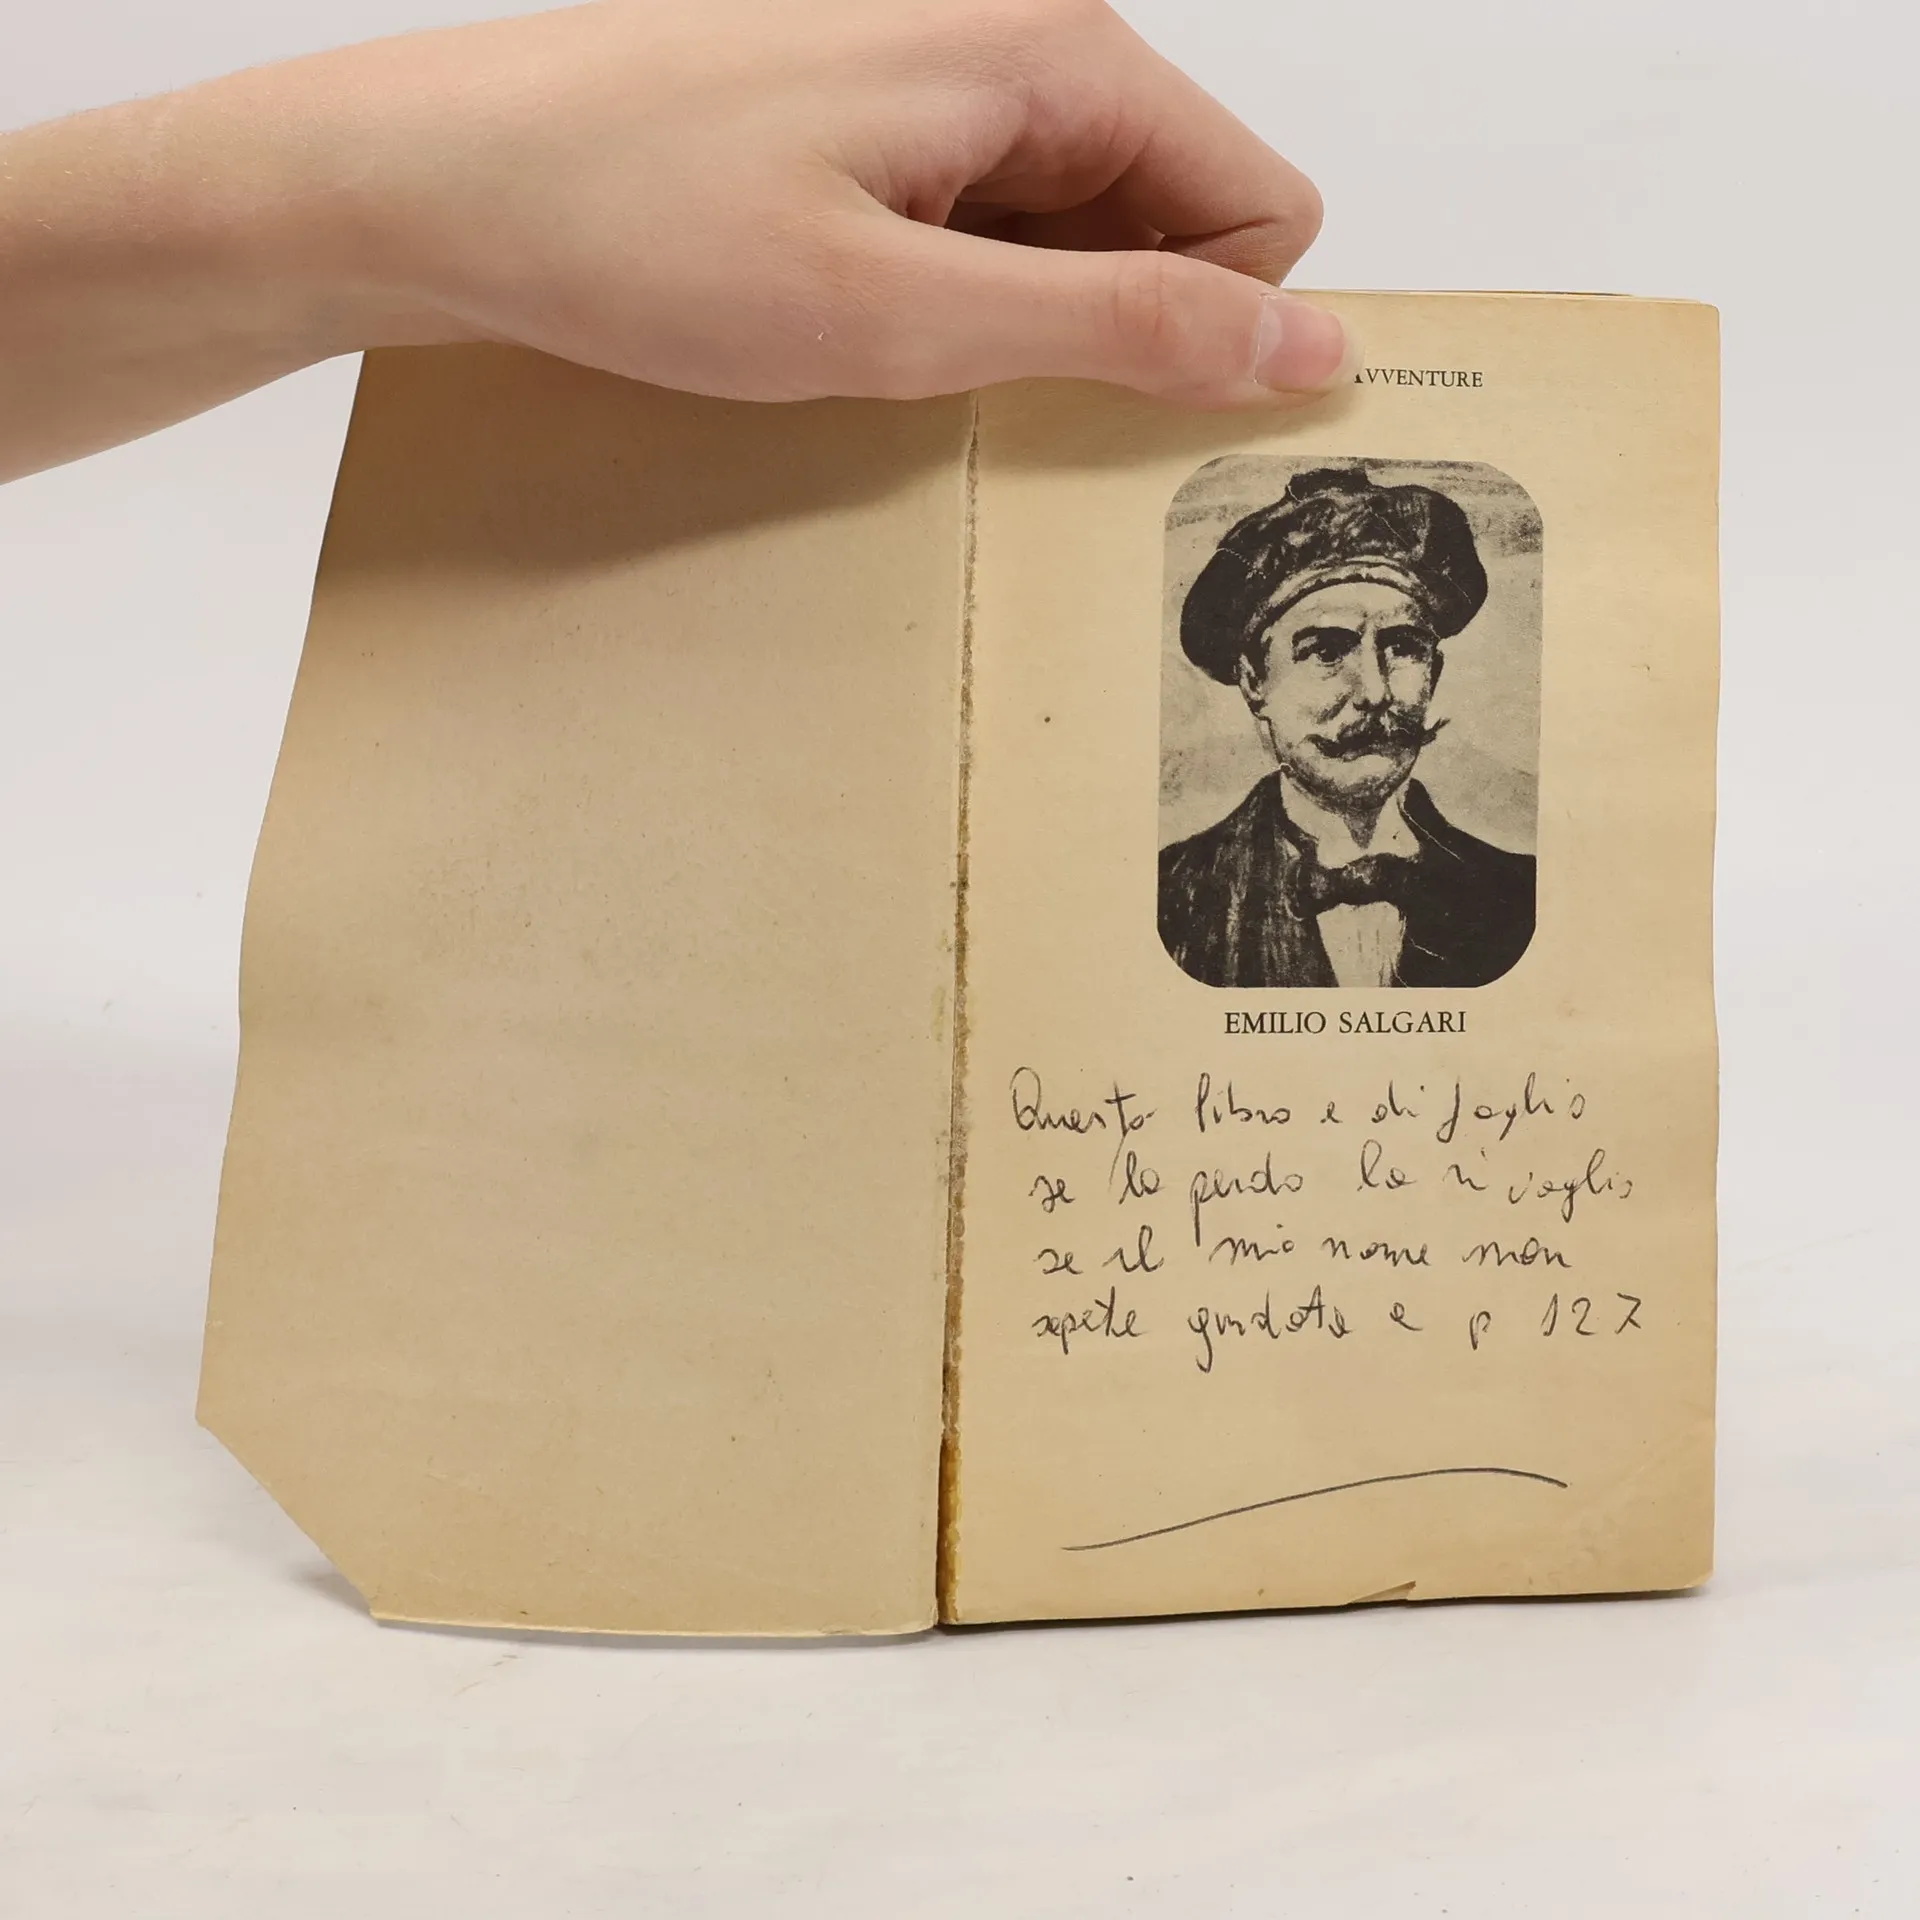 AVVENTURE
EMILIO SALGARI
Questo libro e di foglio
se lo perdo lo ri voglio
se il mio nome non
sapete gurdate a p 127